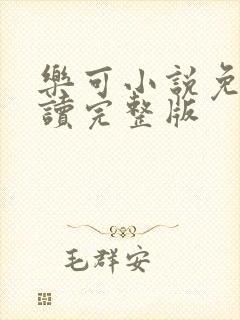 樂可小說免
讀完整版
毛群安